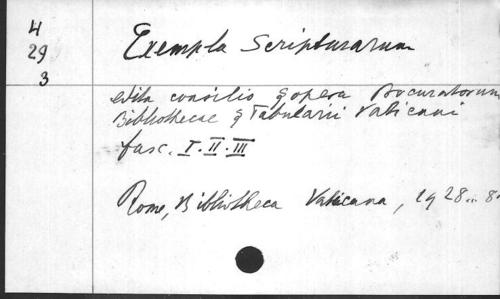 4
29
3
Exempla Scripturarum
edita consilio & opera Procuratorum
Bibliothecae & Tabularii Vaticani
fasc. I. II. III
Rome, Bibliotheca Vaticana, 1928..